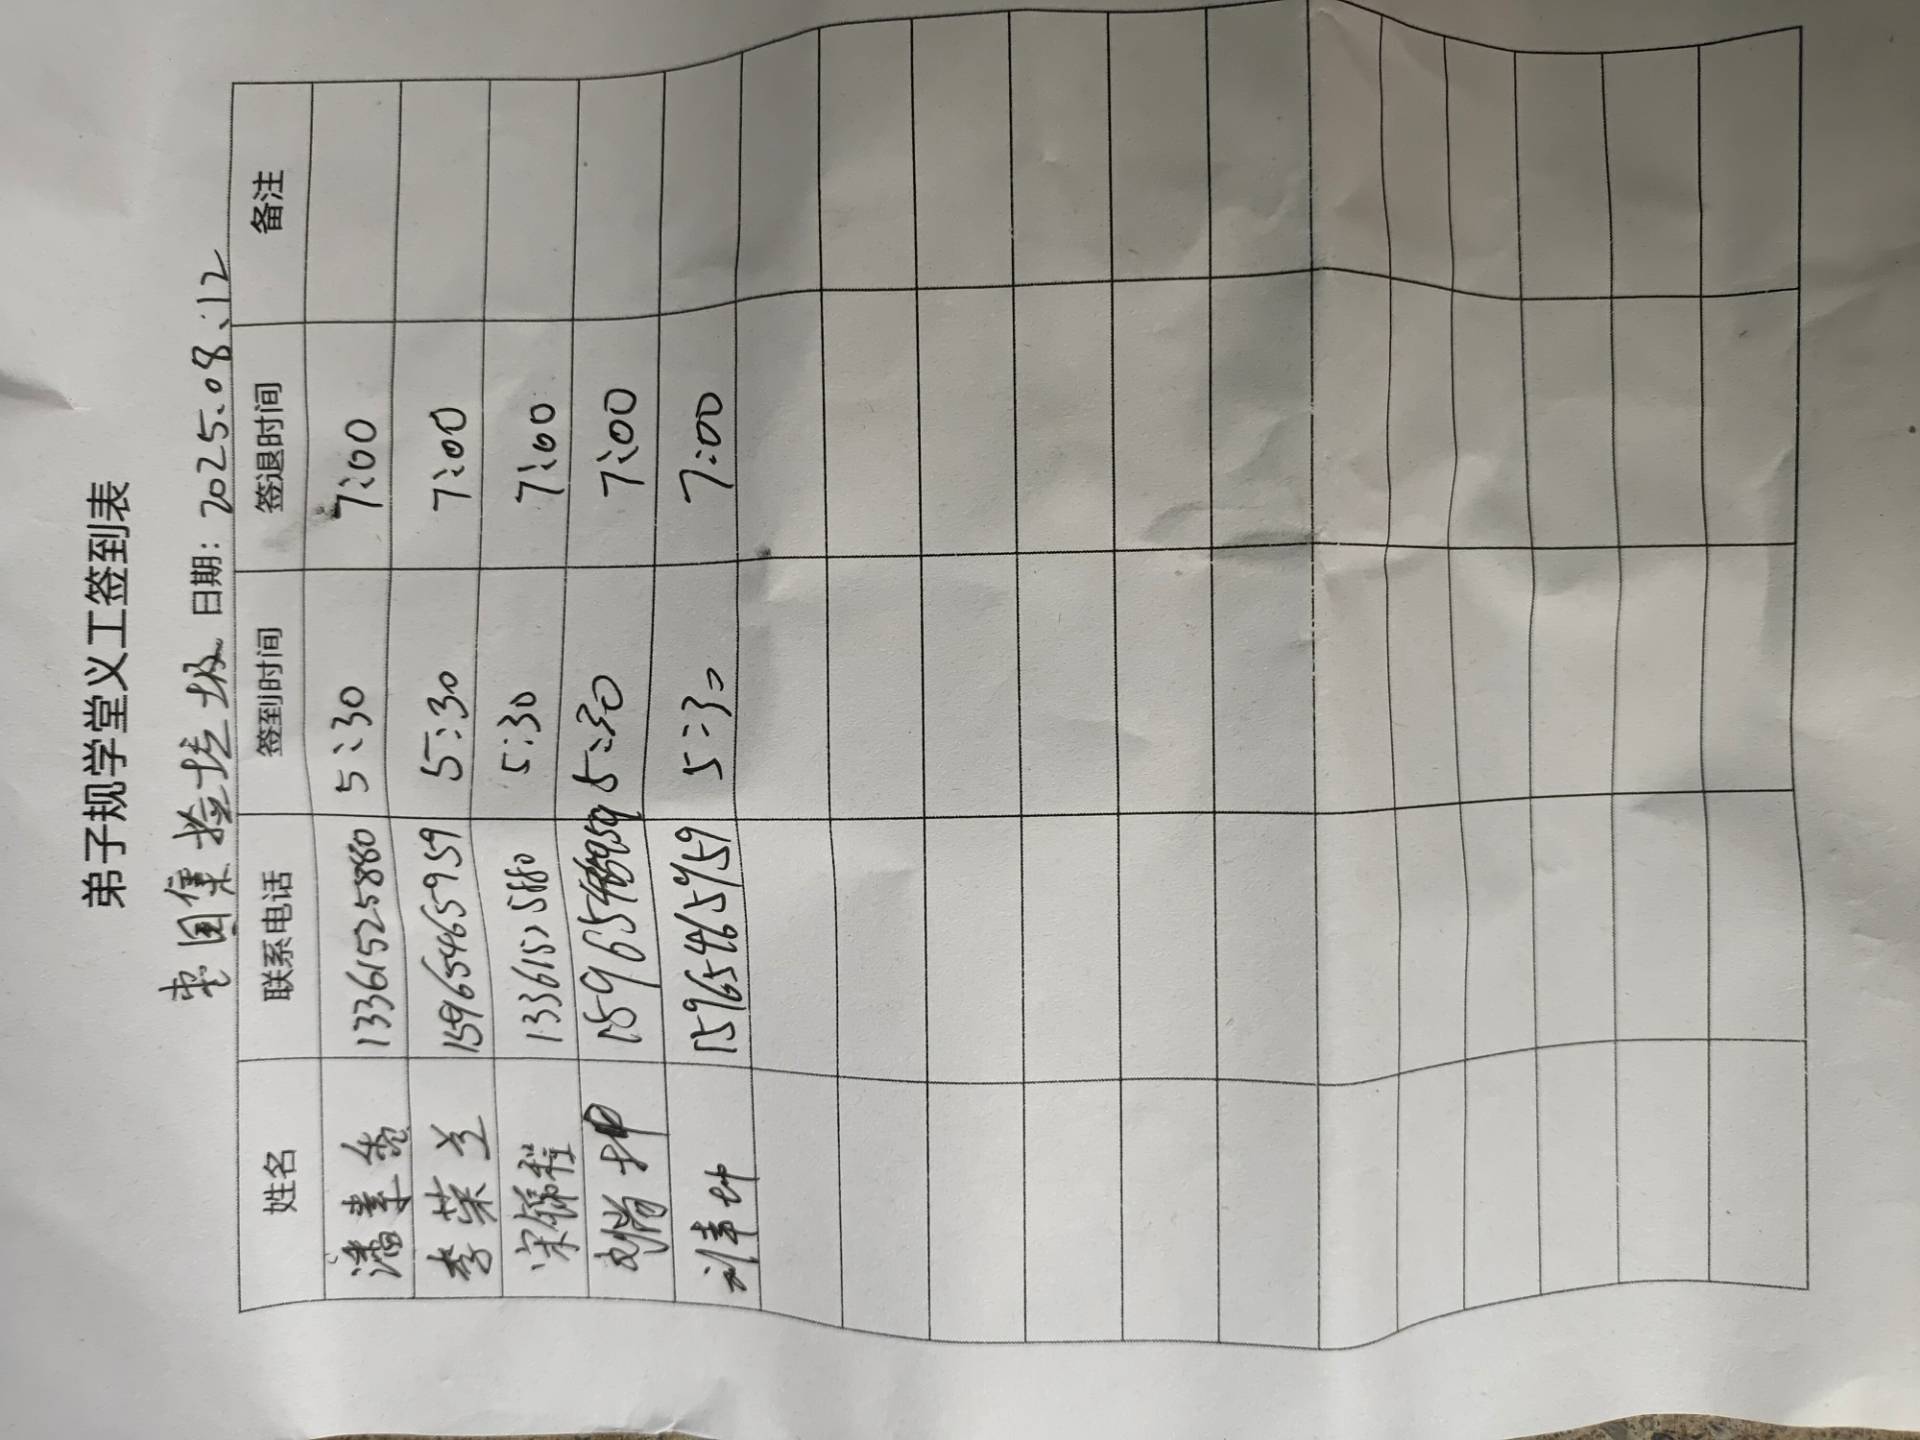 弟子规学堂义工签到表
枣园集捡垃圾 日期: 2025.08.12
姓名 联系电话 签到时间 签退时间 备注
潘香 13361525880 5:30 7:00
李荣兰 15965465959 5:30 7:00
宋锦程 13361525880 5:30 7:00
5:30 7:00
15965465959 5:30 7:00